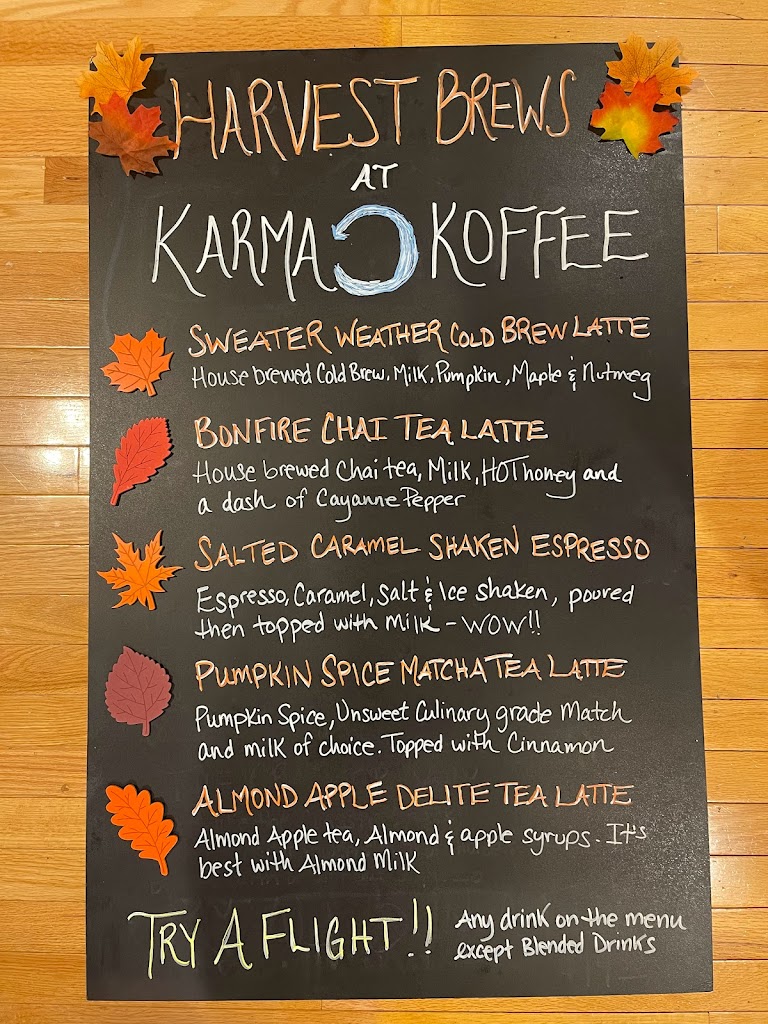 HARVEST BREWS
AT
KARMA KOFFEE
SWEATER WEATHER COLD BREW LATTE
House brewed Cold Brew, Milk, Pumpkin, Maple & Nutmeg
BONFIRE CHAI TEA LATTE
House brewed Chai tea, Milk, HOT honey and
a dash of Cayanne Pepper
SALTED CARAMEL SHAKEN ESPRESSO
Espresso, Caramel, Salt & Ice shaken, poured
then topped with milk - WOW!!
PUMPKIN SPICE MATCHA TEA LATTE
Pumpkin Spice, Unsweet Culinary grade Match
and milk of choice. Topped with Cinnamon
ALMOND APPLE DELITE TEA LATTE
Almond Apple tea, Almond & apple syrups. It's
best with Almond Milk
TRY A FLIGHT!! Any drink on the menu
except Blended Drinks